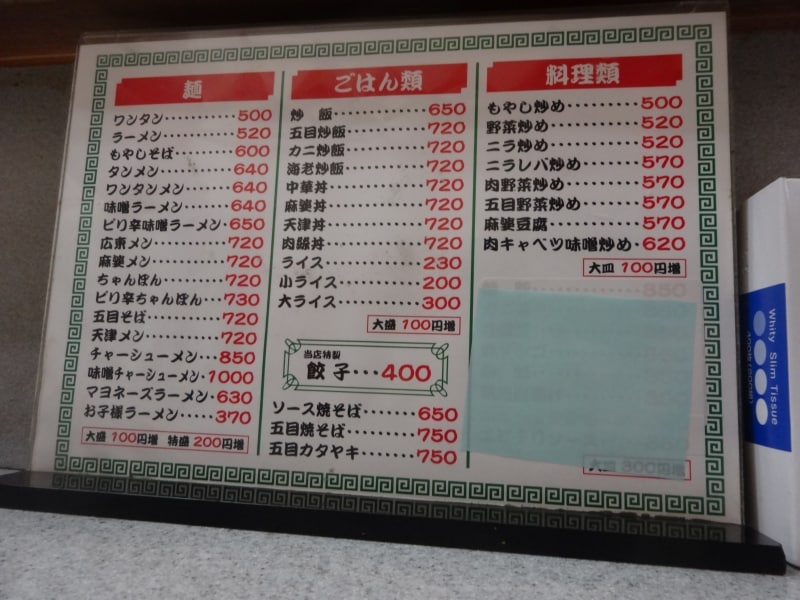 麺
ワンタン・・・・・・・・・・・500
ラーメン・・・・・・・・・・・520
もやしそば・・・・・・・・・600
タンメン・・・・・・・・・・・640
ワンタンメン・・・・・・・・640
味噌ラーメン・・・・・・・・640
ピリ辛味噌ラーメン・650
広東メン・・・・・・・・・・・720
麻婆メン・・・・・・・・・・・720
ちゃんぽん・・・・・・・・・720
ピリ辛ちゃんぽん・・・730
五目そば・・・・・・・・・・・720
天津メン・・・・・・・・・・・720
チャーシューメン・・・850
味噌チャーシューメン・1000
マヨネーズラーメン・630
お子様ラーメン・・・・・370
大盛 100円増 特盛 200円増
ごはん類
炒 飯・・・・・・・・・・・650
五目炒飯・・・・・・・・・720
カニ炒飯・・・・・・・・・720
海老炒飯・・・・・・・・・720
中華丼・・・・・・・・・・・720
麻婆丼・・・・・・・・・・・720
天津丼・・・・・・・・・・・720
肉絲丼・・・・・・・・・・・720
ライス・・・・・・・・・・・230
小ライス・・・・・・・・・200
大ライス・・・・・・・・・300
大盛 100円増
当店特製
餃子・・・400
ソース焼そば・・・・・・650
五目焼そば・・・・・・・・750
五目カタヤキ・・・・・・750
料理類
もやし炒め・・・・・・・・・500
野菜炒め・・・・・・・・・・・520
ニラ炒め・・・・・・・・・・・520
ニラレバ炒め・・・・・・・570
肉野菜炒め・・・・・・・・・570
五目野菜炒め・・・・・・・570
麻婆豆腐・・・・・・・・・・・570
肉キャベツ味噌炒め・620
大皿 100円増
850
大皿 300円増
Whity Slim Tissue